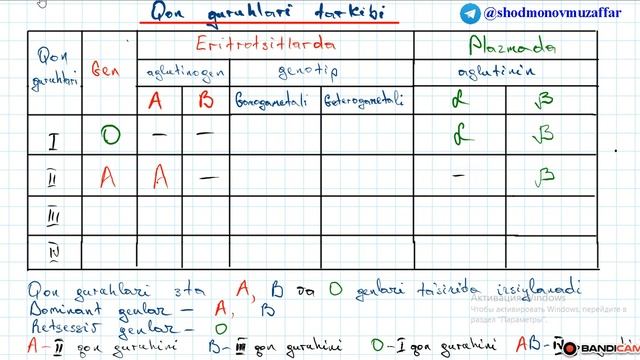 Qon guruhlari tarkibi
@shodmonovmuzaffar
Qon guruhlari
Gen
Eritrotsitlarda
Plazmada
aglutinogen
genotip
aglutinin
A B Gomogametali Geterogametali α β
I O — — α β
II A A — - β
III
IV
Qon guruhlari 3ta A, B va O genlari ta'sirida irsiylanadi
Dominant genlar — A, B
Retsessiv genlar — O
A-II qon guruhini B-III qon guruhini O-I qon guruhini AB-IV
Активация Windows
Чтобы активировать Windows, перейдите в
раздел "Параметры".
BANDICAM